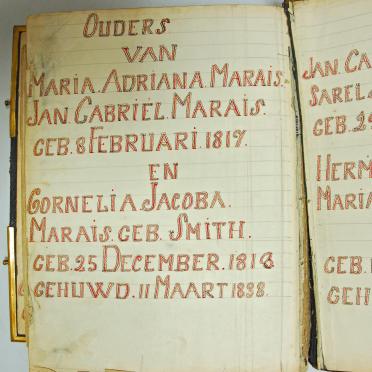 OUDERS
VAN
MARIA. ADRIANA. MARAIS.
JAN. GABRIEL. MARAIS.
GEB. 8 FEBRUARI. 1817.
EN
CORNELIA. JACOBA.
MARAIS. GEB. SMITH.
GEB. 25 DECEMBER. 1818
GEHUWD. 11 MAART 1838.
JAN. GA
SAREL
GEB. 2
HERM
MARIA
GEB.
GEH